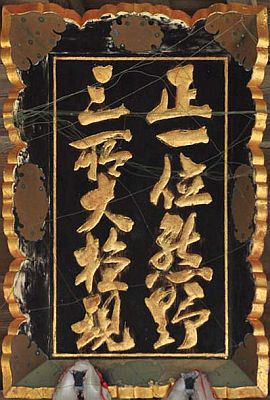 正一位熊野
三所大権現